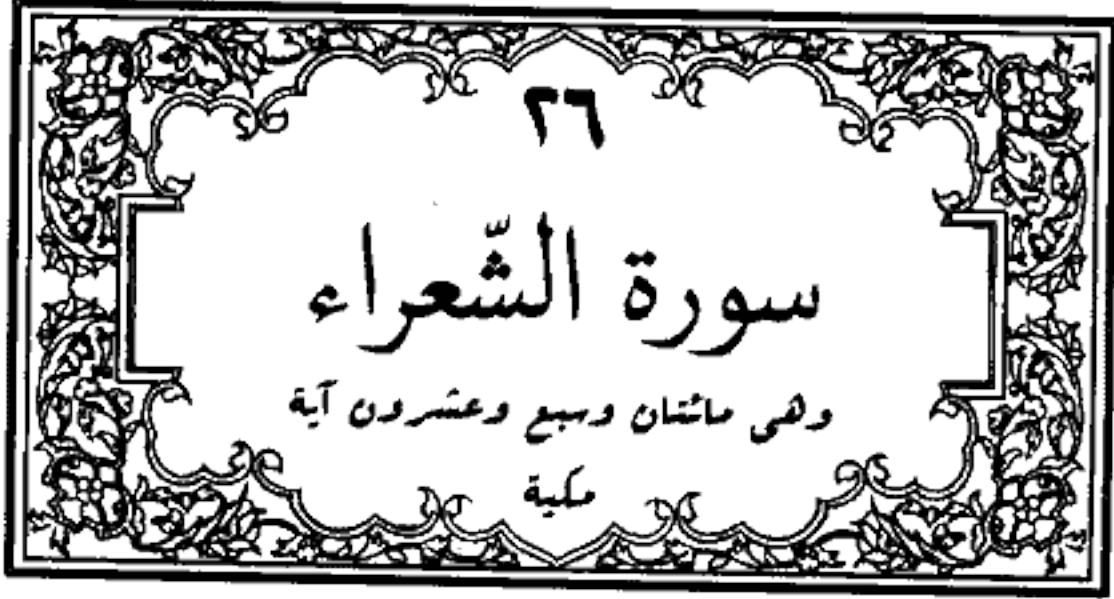 ٢٦
سورة الشّعراء
وهى مائتان وسبع وعشرون آية
مكية